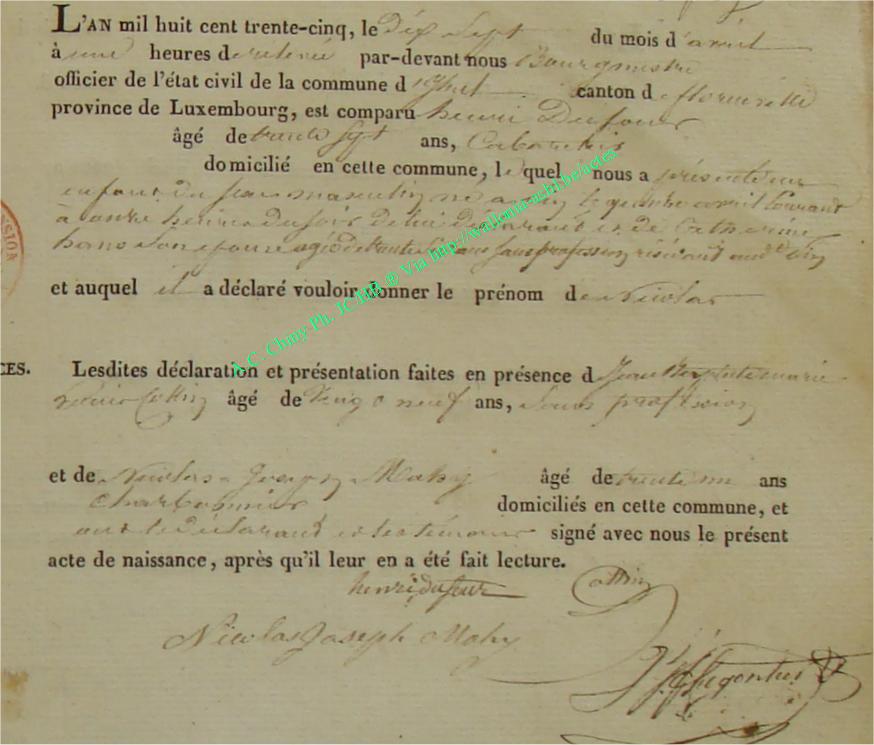 L'AN mil huit cent trente-cinq, le dix Sept du mois d'avril
à une heures de relevée par-devant nous Bourgmestre
officier de l'état civil de la commune d'izel canton de florenville
province de Luxembourg, est comparu henri Dufour
âgé de trente Sept ans, Cabaretier
domicilié en cette commune, lequel nous a présenté un
enfant du sexe masculin né a le quinze avril Courant
à onze heures du soir de lui déclarant et de Catherine
hans Son épouse agée de trente ans Sans profession résidant audit
et auquel il a déclaré vouloir donner le prénom de Nicolas
CES. Lesdites déclaration et présentation faites en présence d Jean Baptiste marie
Louis Collin âgé de Vingt neuf ans, Sans profession
et de Nicolas Joseph Mahy âgé de trente un ans
Charbonnier domiciliés en cette commune, et
ont le déclarant et les témoins signé avec nous le présent
acte de naissance, après qu'il leur en a été fait lecture.
henri dufour Collin
Nicolas Joseph Mahy
A.C. Chiny Ph. JC ® Via http://wallonia-asbl.be/actes